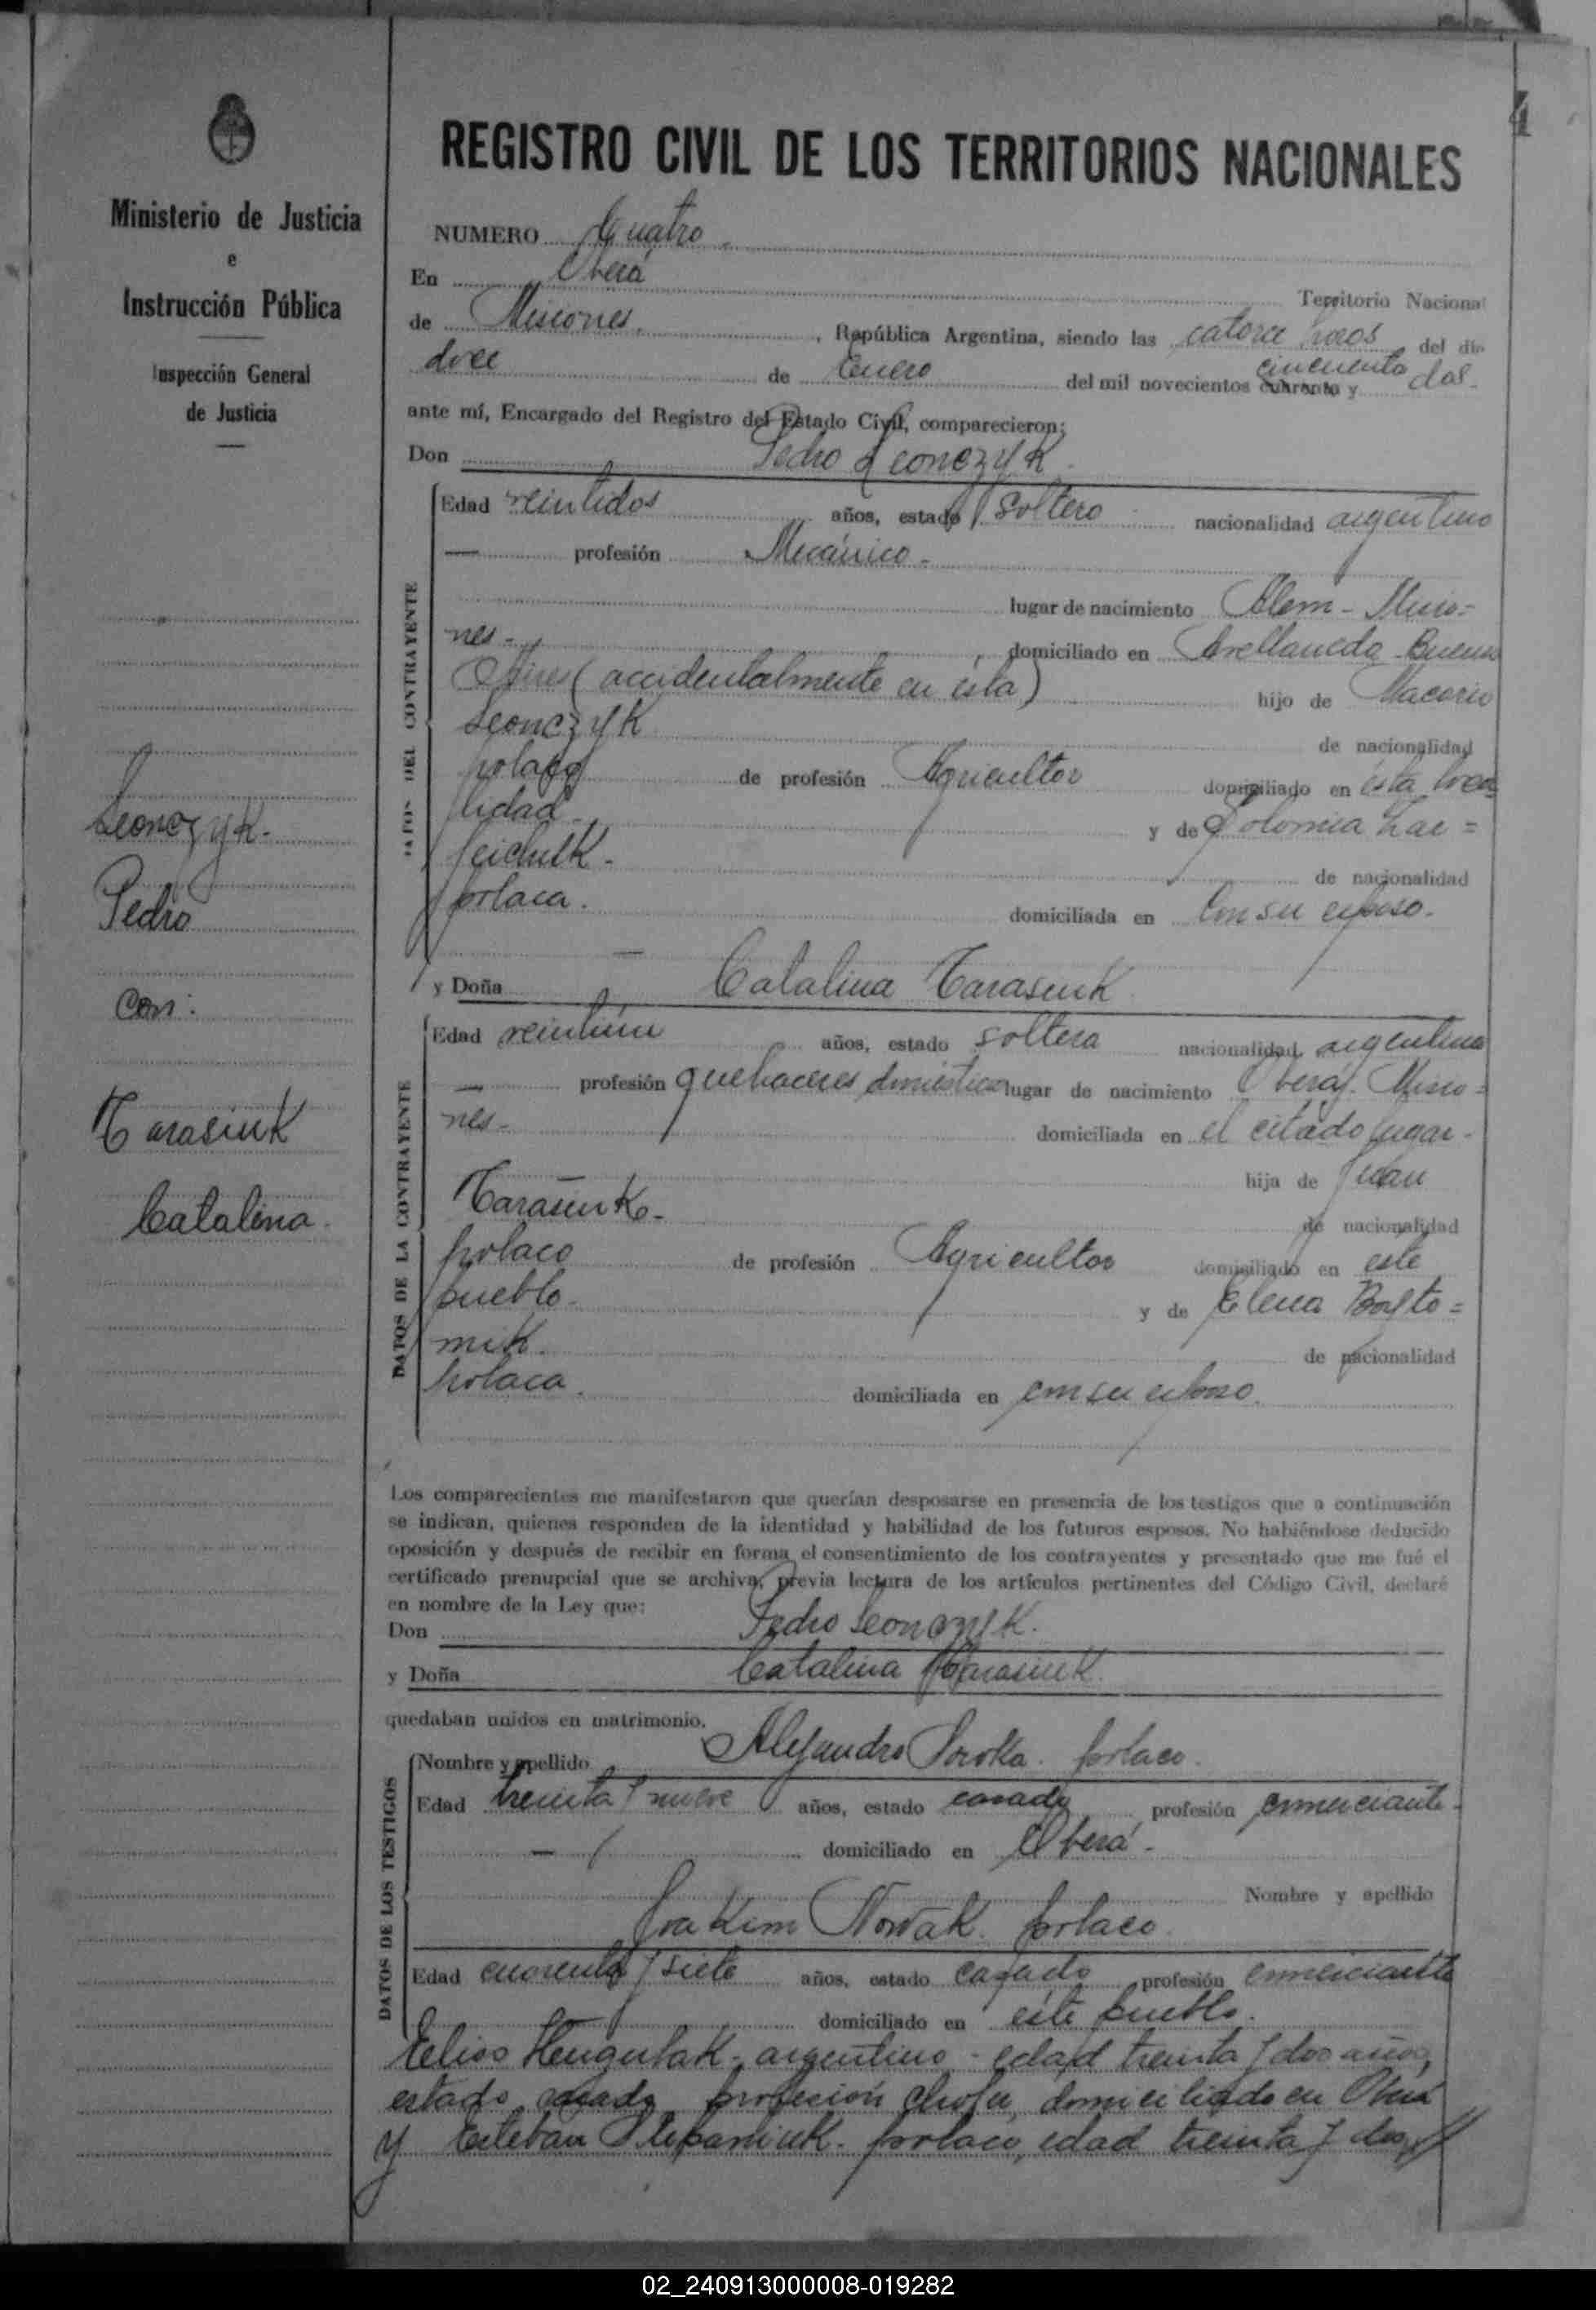 4
Ministerio de Justicia
e
Instrucción Pública
Inspección General
de Justicia
Leonczyk.
Pedro
Con:
Tarasiuk
Catalina.
REGISTRO CIVIL DE LOS TERRITORIOS NACIONALES
NUMERO Cuatro.
En Oberá Territorio Nacional
de Misiones. , República Argentina, siendo las catorce horas del día
doce de Enero del mil novecientos cuarenta y cincuenta dos.
ante mí, Encargado del Registro del Estado Civil, comparecieron:
Don Pedro Leonczyk
Edad veintidos años, estado soltero nacionalidad argentino
— profesión Mecánico.
DATOS DEL CONTRAYENTE
lugar de nacimiento Alem - Misio=
nes - domiciliado en Avellaneda - Buenos
Aires (accidentalmente en ésta) hijo de Macario
Leonczyk de nacionalidad
polaco de profesión Agricultor domiciliado en ésta loca
lidad. y de Polomia
de nacionalidad
polaca. domiciliada en Con su esposo.
y Doña Catalina Tarasiuk
Edad veintiún años, estado soltera nacionalidad argentina
— profesión quehaceres domésticos lugar de nacimiento Oberá. Misio=
nes - domiciliada en el citado lugar.
DATOS DE LA CONTRAYENTE
hija de Juan
Tarasiuk. de nacionalidad
polaco de profesión Agricultor domiciliado en este
pueblo. y de Elena
de nacionalidad
polaca. domiciliada en con su esposo.
Los comparecientes me manifestaron que querían desposarse en presencia de los testigos que a continuación
se indican, quienes responden de la identidad y habilidad de los futuros esposos. No habiéndose deducido
oposición y después de recibir en forma el consentimiento de los contrayentes y presentado que me fué el
certificado prenupcial que se archiva, previa lectura de los artículos pertinentes del Código Civil, declaré
en nombre de la Ley que:
Don Pedro Leonczyk.
y Doña Catalina Tarasiuk.
quedaban unidos en matrimonio.
DATOS DE LOS TESTIGOS
Nombre y apellido Alejandro Soroka. polaco.
Edad treinta y nueve años, estado casado profesión comerciante.
— domiciliado en Oberá.
Nombre y apellido
Joakim Nowak. polaco.
Edad cuarenta y siete años, estado casado profesión comerciante
domiciliado en este pueblo.
argentino - edad treinta y dos años,
estado casado profesión chofer, domiciliado en Oberá
y Esteban Stepaniuk. polaco, edad treinta y dos
02_240913000008-019282